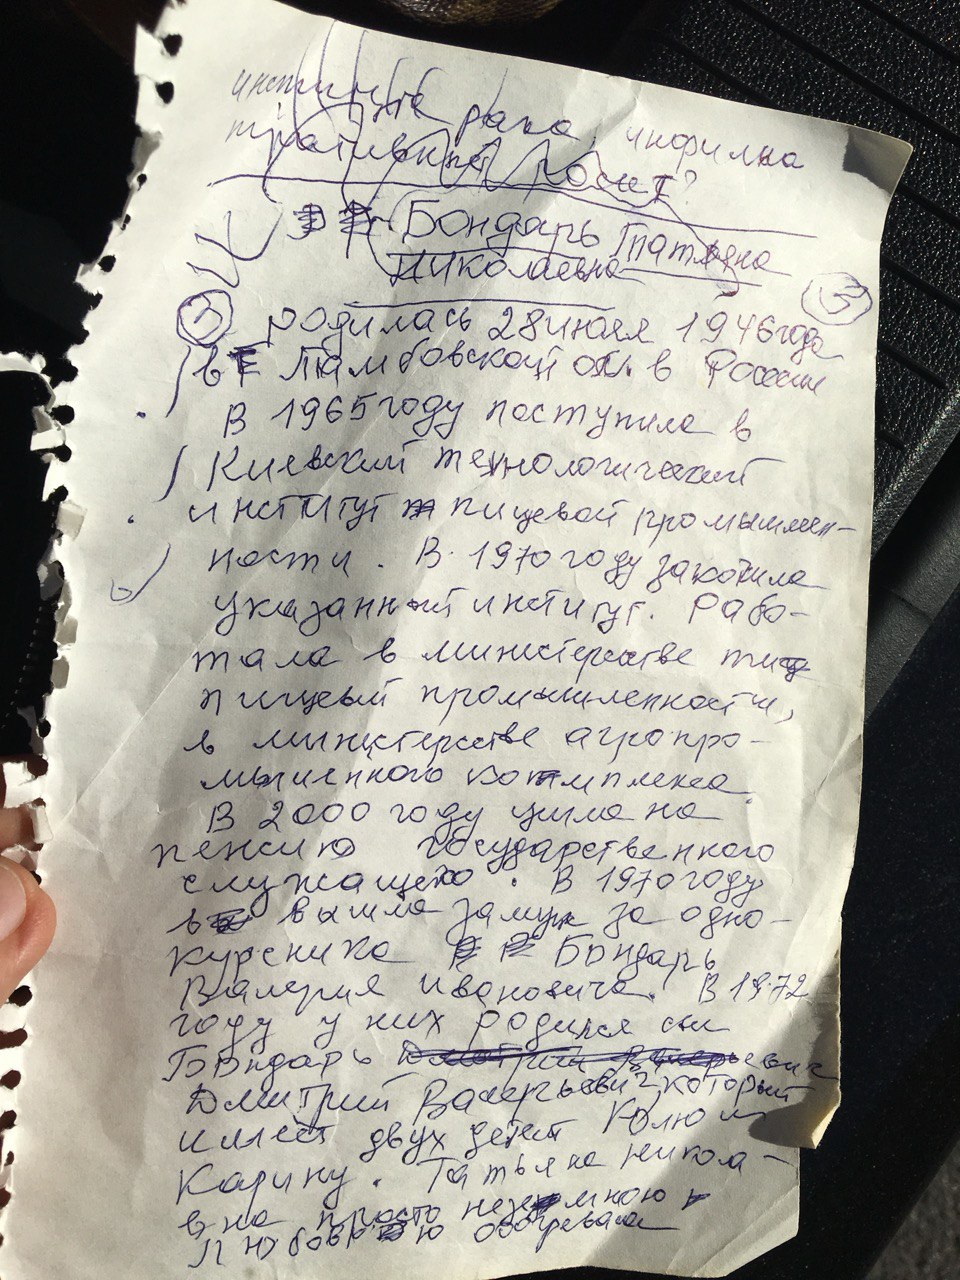 институте рака, инфильна
Бондарь Татьяна
Николаевна
3
3
родилась 28 июля 1946 года
в Тамбовской обл. в России
В 1965 году поступила в
Киевский технологический
институт пищевой промышлен-
ности. В 1970 году закончила
указанный институт. Рабо-
тала в министерстве
пищевой промышленности,
в министерстве агропро-
мышленного комплекса.
В 2000 году ушла на
пенсию государственного
служащего. В 1970 году
вышла замуж за одно-
курсника Бондарь
Валерия Ивановича. В 1972
году у них родился сын
Бондарь
Дмитрий Валерьевич который
имеет двух детей Юлю и
Карину. Татьяна Никола-
вна просто неземною
любовью обогревала